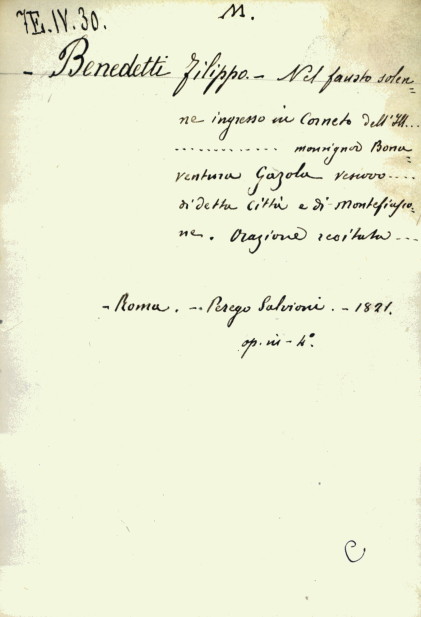 7E.IV.30.
M.
- Benedetti Filippo. - Nel fausto solen=
ne ingresso in Corneto dell'Ill....
............. monsignor Bona=
ventura Gazola vescovo ....
di detta Città e di Montefiasco=
ne. Orazione recitata ....
- Roma. - Perego Salvioni. - 1821.
op. in - 4.°
C